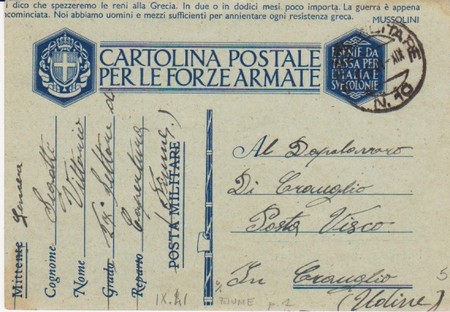 dico che spezzeremo le reni alla Grecia. In due o in dodici mesi, poco importa. La guerra è appena
incominciata. Noi abbiamo uomini e mezzi sufficienti per annientare ogni resistenza greca.
MUSSOLINI
CARTOLINA POSTALE
PER LE FORZE ARMATE
ESENTE DA
TASSA PER
L'ITALIA E
SUE COLONIE
N. 10
Mittente
Cognome
Nome Vittorio
Grado
Reparto Copertura
POSTA MILITARE (Fiume)
Al Dopolavoro
Di Crauglio
Posta Visco
In Crauglio
(Udine)
IX.41
FIUME p. 1